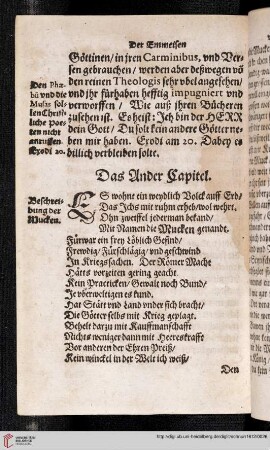 Der Emmeisen
Göttinen/ in jren Carminibus, vnd Ver-
sen gebrauchen/ werden aber deßwegen võ
den reinen Theologis sehr vbel angesehen/
vnd jhr fürhaben hefftig impugniert vnd
verworffen/ Wie auß jhren Bücheren
zusehen ist. Es heist: Ich bin der HERR
dein Gott/ Du solt kein andere Götter ne-
ben mir haben. Exodi am 20. Dabey es
billich verbleiben solte.
Den Phœ-
bũ vnd die
Musas sol-
len Christ-
liche Poe-
ten nicht
anruffen.
Exodi 20.
Das Ander Capitel.
Beschrei-
bung der
Mucken.
ES wohne ein weydlich Volck auff Erd/
Das Ichs mit ruhm erheb/ wol wehrt,
Ohn zweiffel jederman bekand/
Mit Namen die Mucken genandt.
Fürwar ein frey Löblich Gesind/
Frewdig/ Fürschlägig/ vnd geschwind
In Kriegssachen. Der Römer Macht
Hätts vorzeiten gering geacht.
Kein Practicken/ Gewalt noch Bund/
Je vberweltigen es kund.
Hat Stätt vnd Land vnder sich bracht/
Die Götter selbs mit Krieg geplagt.
Behelt darzu mit Kauffmanschafft
Nichts weniger dann mit Heereskrafft
Vor anderen der Ehren Preiß/
Kein winckel in der Welt ich weiß/
Den